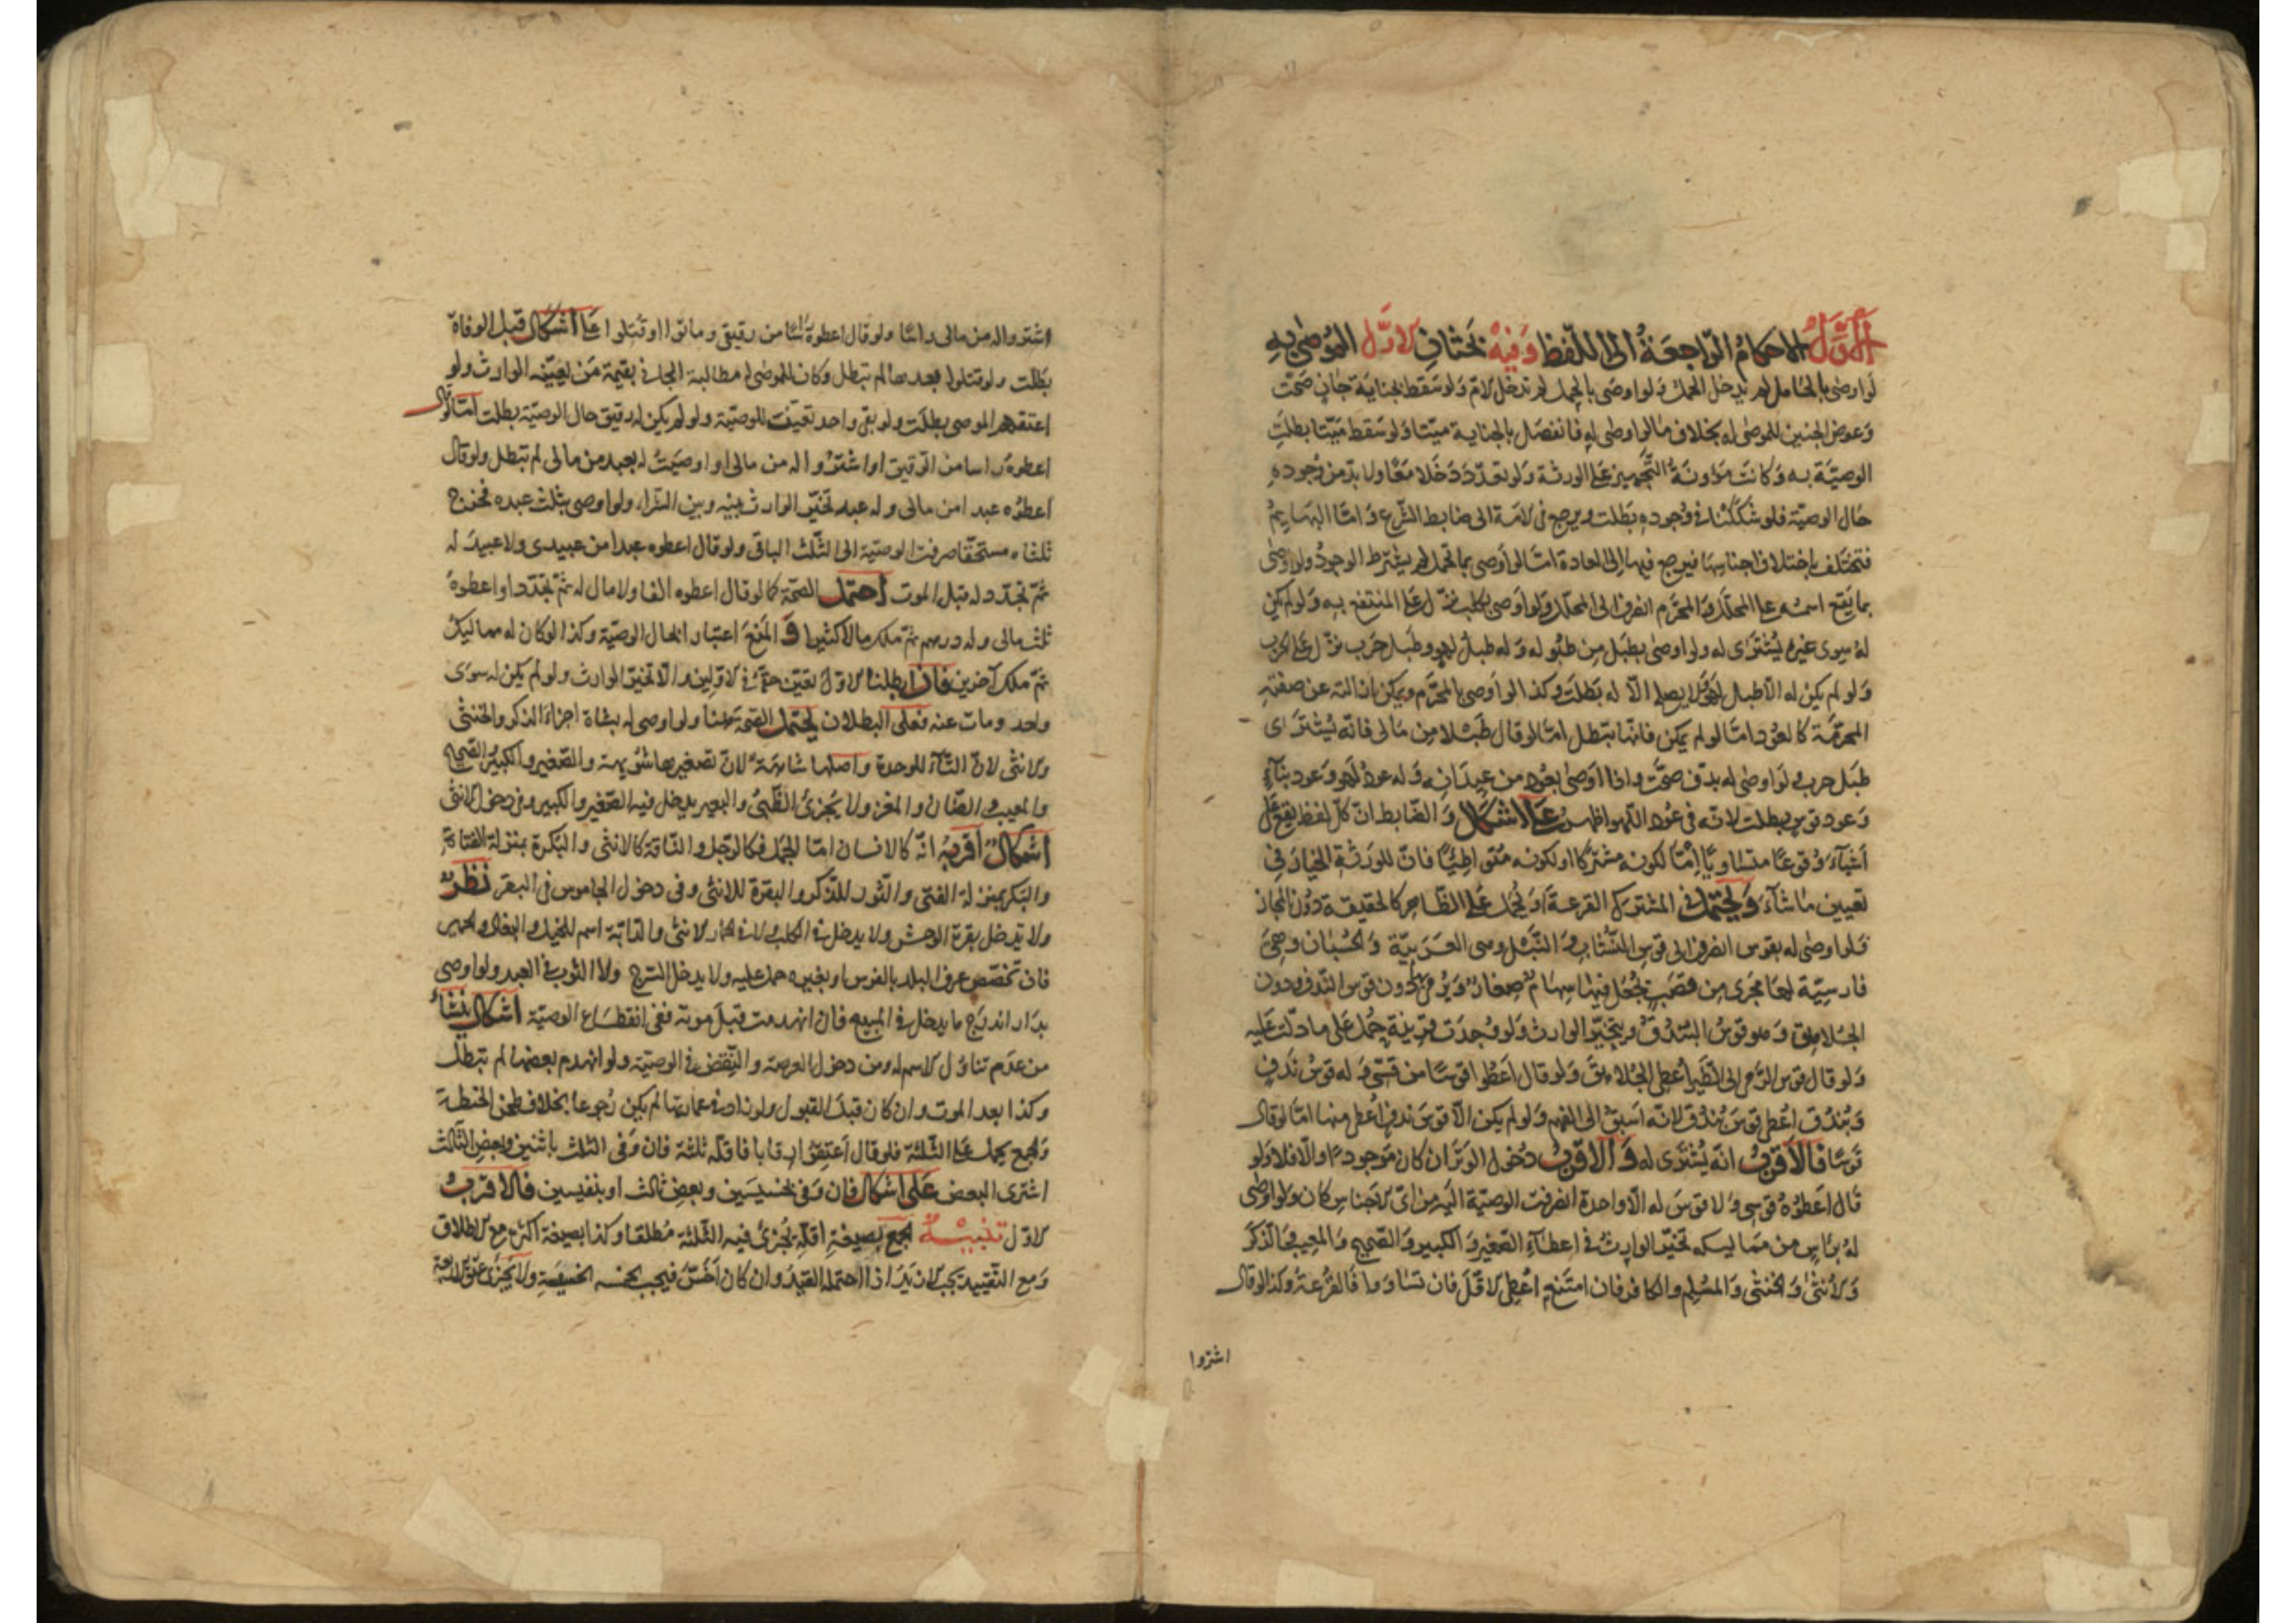 الأوّل الاحكام الراجعة الى اللفظ وفيه بحثان الاوّل الموصى به
لو اوصى بالحامل لم يدخل الحمل ولو اوصى بالحمل لم تدخل الامّ ولو سقط بجناية جانٍ صحّت
وعوض الجنين للموصى له بخلاف ما لو اوصى له فانفصل بالجناية ميّتا ولو سقط ميّتا بطلت
الوصيّة به وكانت مؤونة التجهيز على الورثة ولو تعدّد دخلا معًا ولا بدّ من وجوده
حال الوصيّة فلو شككنا في وجوده بطلت ويرجع في الامة الى ضابط الشرع وامّا البهايم
فتختلف باختلاف اجناسها فيرجع فيها الى العادة امّا لو اوصى بما تحمل لم يشترط الوجود ولو اوصى
بما يقع اسمه على المحلّل والمحرّم انصرف الى المحلّل ولو اوصى بكلب نزّل على المنتفع به ولو لم يكن
له سوى غيره يُشترى له ولو اوصى بطبل من طبوله وله طبل لهو وطبل حرب نزّل على الحرب
ولو لم يكن له الّا طبل لهو لا يصلح الّا له بطلت وكذا لو اوصى بالمحرّم ويمكن ازالته عن صفته
المحرّمة كالعود امّا لو لم يمكن فانّها تبطل امّا لو قال طبلا من مالى فانّه يُشترى
طبل حرب ولو اوصى له بدفّ صحّت واذا اوصى بعود من عيدانه وله عود لهو وعود بناء
وعود قوس بطلت لانّه فى عود اللهو اظهر على اشكال والضابط انّ كلّ لفظ يقع على
اشياء وقوعا متساويّا امّا لكونه مشتركا او لكونه متواطئًا فانّ للورثة الخيار فى
تعيين ما شاء ويحتمل فى المشترك القرعة او يُحمل على الظاهر كالحقيقة دون المجاز
فلو اوصى له بقوس انصرف الى قوس النشّاب والنبل وهى العربيّة والحسبان وهى
فارسيّة لها مجرى من قصب يُجعل فيها سهام صغار ويرمى بها دون قوس الندف ودون
الجلاهق وهو قوس البندق ويتخيّر الوارث ولو وُجدت قرينة حُمل على ما دلّت عليه
ولو قال قوس الرمى الى الطير اُعطى الجلاهق ولو قال اعطوا قوسًا من قسىّ وله قوس ندف
وبندق اُعطى قوس بندق لانّه اسبق الى الفهم ولو لم يكن الّا قوس ندف اُعطى منها امّا لو قال
قوسًا فالاقرب انّه يُشترى له والاقرب دخول الوتر ان كان موجودًا والّا فلا ولو
قال اعطوه قوسى ولا قوس له الّا واحدة انصرفت الوصيّة اليه من اىّ الاجناس كان ولو اوصى
له برأس من مماليكه تخيّر الوارث فى اعطاء الصغير والكبير والصحيح والمعيب والذكر
والانثى والخنثى والمسلم والكافر فان امتنع اُعطى الاقلّ فان تساوما فالقرعة وكذا لو قال
اشتروا
اشتروا له من مالى راسًا ولو قال اعطوه راسًا من رقيقى وماتوا او قُتلوا على اشكال قبل الوفاة
بطلت ولو قتلوا بعدها لم تبطل وكان للموصى له مطالبة الجانى بقيمة من يعيّنه الوارث ولو
اعتقهم الموصى بطلت ولو بقى واحد تعيّنت للوصيّة ولو لم يكن له رقيق حال الوصيّة بطلت امّا لو قال
اعطوه راسا من الرقيق او اشتروا له من مالى او اوصيت له بعبد من مالى لم تبطل ولو قال
اعطوه عبدا من مالى وله عبد تخيّر الوارث بينه وبين الشراء ولو اوصى بثلث عبده فخرج
ثلثاه مستحقّا صرفت الوصيّة الى الثلث الباقى ولو قال اعطوه عبدا من عبيدى ولا عبيد له
ثمّ تجدّد له قبل الموت احتمل الصحّة كما لو قال اعطوه الفا ولا مال له ثمّ تجدّد او اعطوه
ثلث مالى وله درهم ثمّ ملك مالا كثيرا و المنع اعتبارا بحال الوصيّة وكذا لو كان له مماليك
ثمّ ملك آخرين فان ابطلنا الاوّل تعيّن حقّه فى الاوّلين والّا تخيّر الوارث ولو لم يكن له سوى
واحد ومات عنه فعلى البطلان يحتمل الصحّة هنا ولو اوصى له بشاة اجزاء الذكر والخنثى
والانثى لانّ التاء للوحدة واصلها شاهة لانّ تصغيرها شويهة والصغير والكبير والصحيح
والمعيب والضان والمعز ولا يُجزئ الظبى والبعير يدخل فيه الصغير والكبير وفى دخول الانثى
اشكال اقربه انّه كالانسان امّا الجمل فكالرجل والناقة كالانثى والبكرة بمنزلة الفتاة
والبكر بمنزلة الفتى والثور للذكر والبقرة للانثى وفى دخول الجاموس فى البقر نظر
ولا تدخل بقرة الوحش ولا يدخل فى الكلب والحمار الانثى والدابّة اسم للخيل والبغال والحمير
فان تخصّص عرف البلد بالفرس او بغيره حمل عليه ولا يدخل السرج ولا الثوب فى العبد ولو اوصى
بدار اندرج ما يدخل فى المبيع فان انهدمت قبل موته ففى انقطاع الوصيّة اشكال ينشأ
من عدم تناول الاسم له ومن دخول العرصة والنقض فى الوصيّة ولو انهدم بعضها لم تبطل
وكذا بعد الموت وان كان قبل القبول ولو زاد فى عمارتها لم يكن رجوعا بخلاف طحن الحنطة
والجمع يحمل على الثلثة فلو قال اعتقوا رقابا فاقلّه ثلثة فان وفى الثلث باثنين وبعض الثالث
اشترى البعض على اشكال فان وفى بخسيسين وبعض ثالث او بنفيسين فالاقرب
الاوّل تنبيه الجمع بصيغة اقلّه يُجزئ فيه الثلثة مُطلقا وكذا بصيغة اكثره مع الاطلاق
ومع التقييد يجب الازيد اذا احتمله القيد وان كان اخسّ فيجب الخسيسة ولا يُجزئ عتق